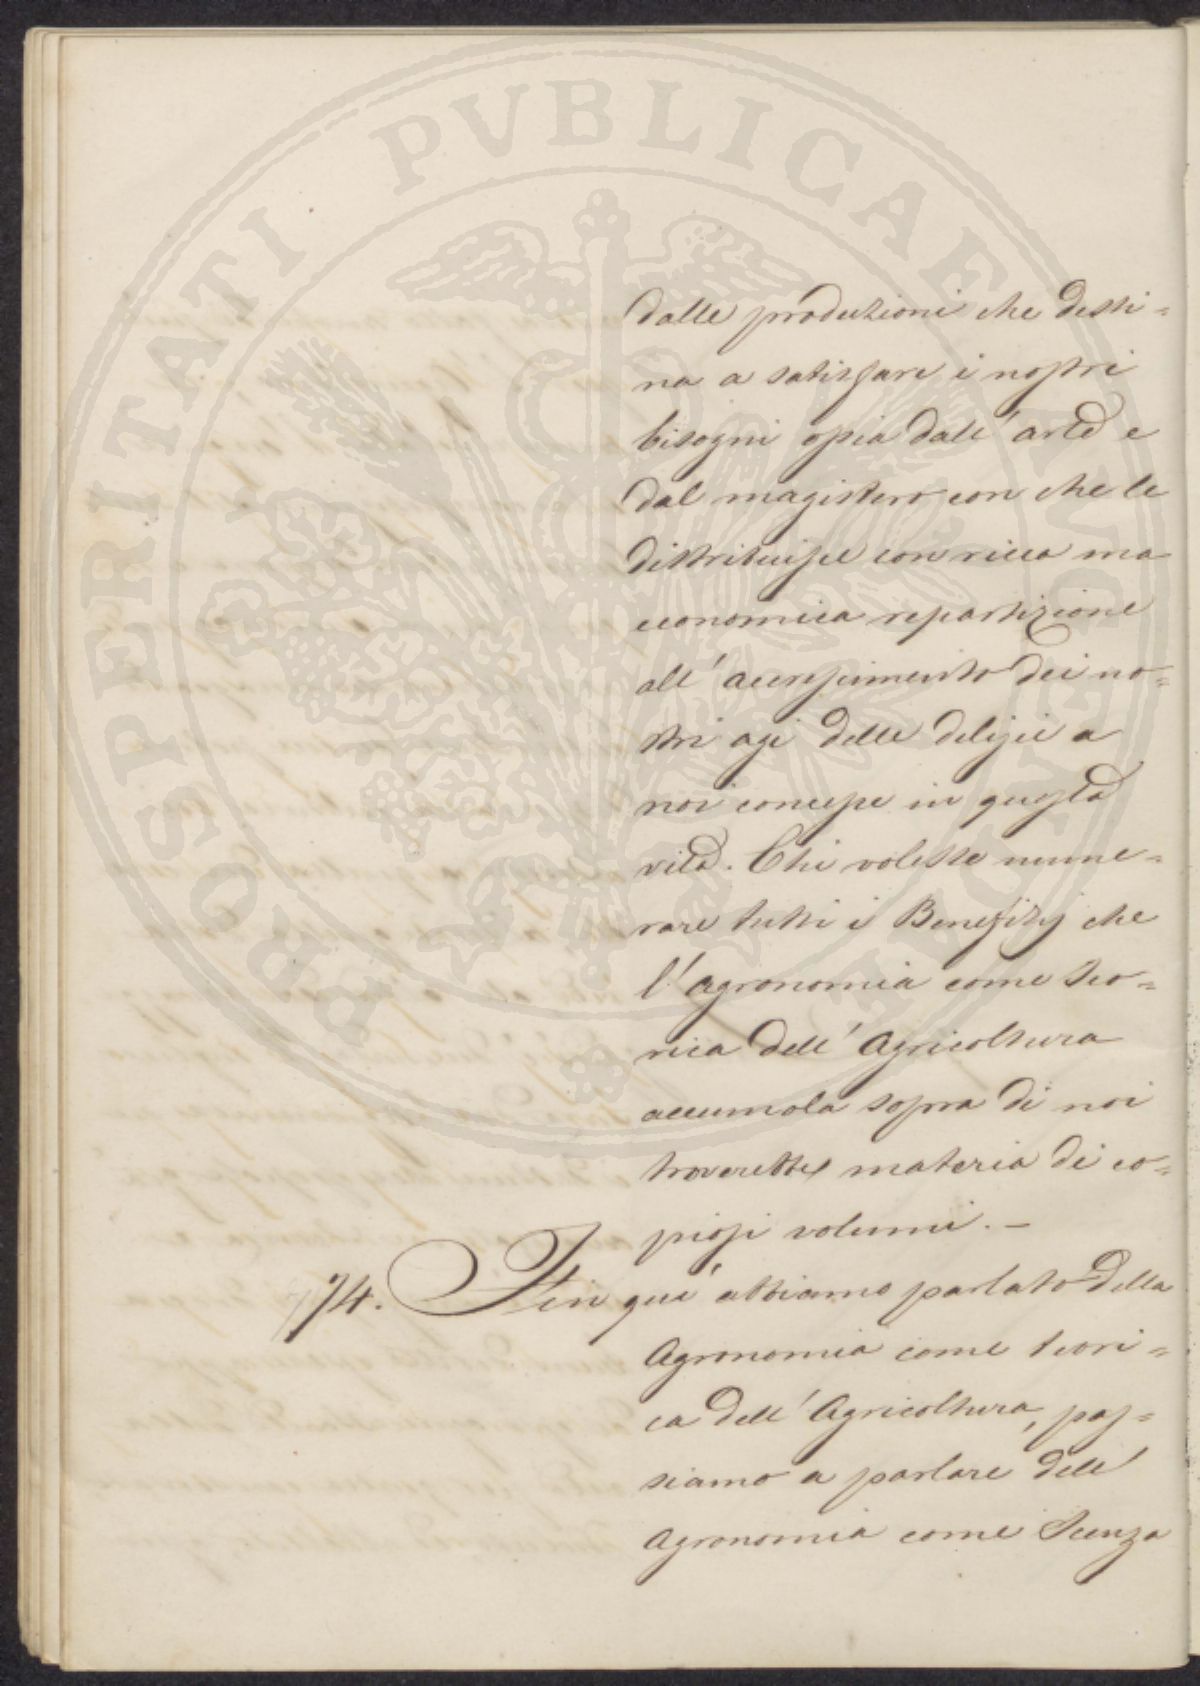 PROSPERITATI PVBLICAE AVGENDAE
dalle produzioni che desti=
na a satisfare i nostri
bisogni opia dall' arte e
dal magistero con che le
distribuisce con ricca ma
economica repartizione
all' accrescimento dei no=
stri agi delle delizie a
noi concesse in questa
vita. Chi volesse nume=
rare tutti i Benefizj che
l' agronomia come teo=
rica dell' Agricoltura
accumola sopra di noi
troverebbe materia di co=
piosi volumi. –
74. Fin qui abbiamo parlato della
Agronomia come teori=
ca dell' Agricoltura, pas=
siamo a parlare dell'
Agronomia come Scenza